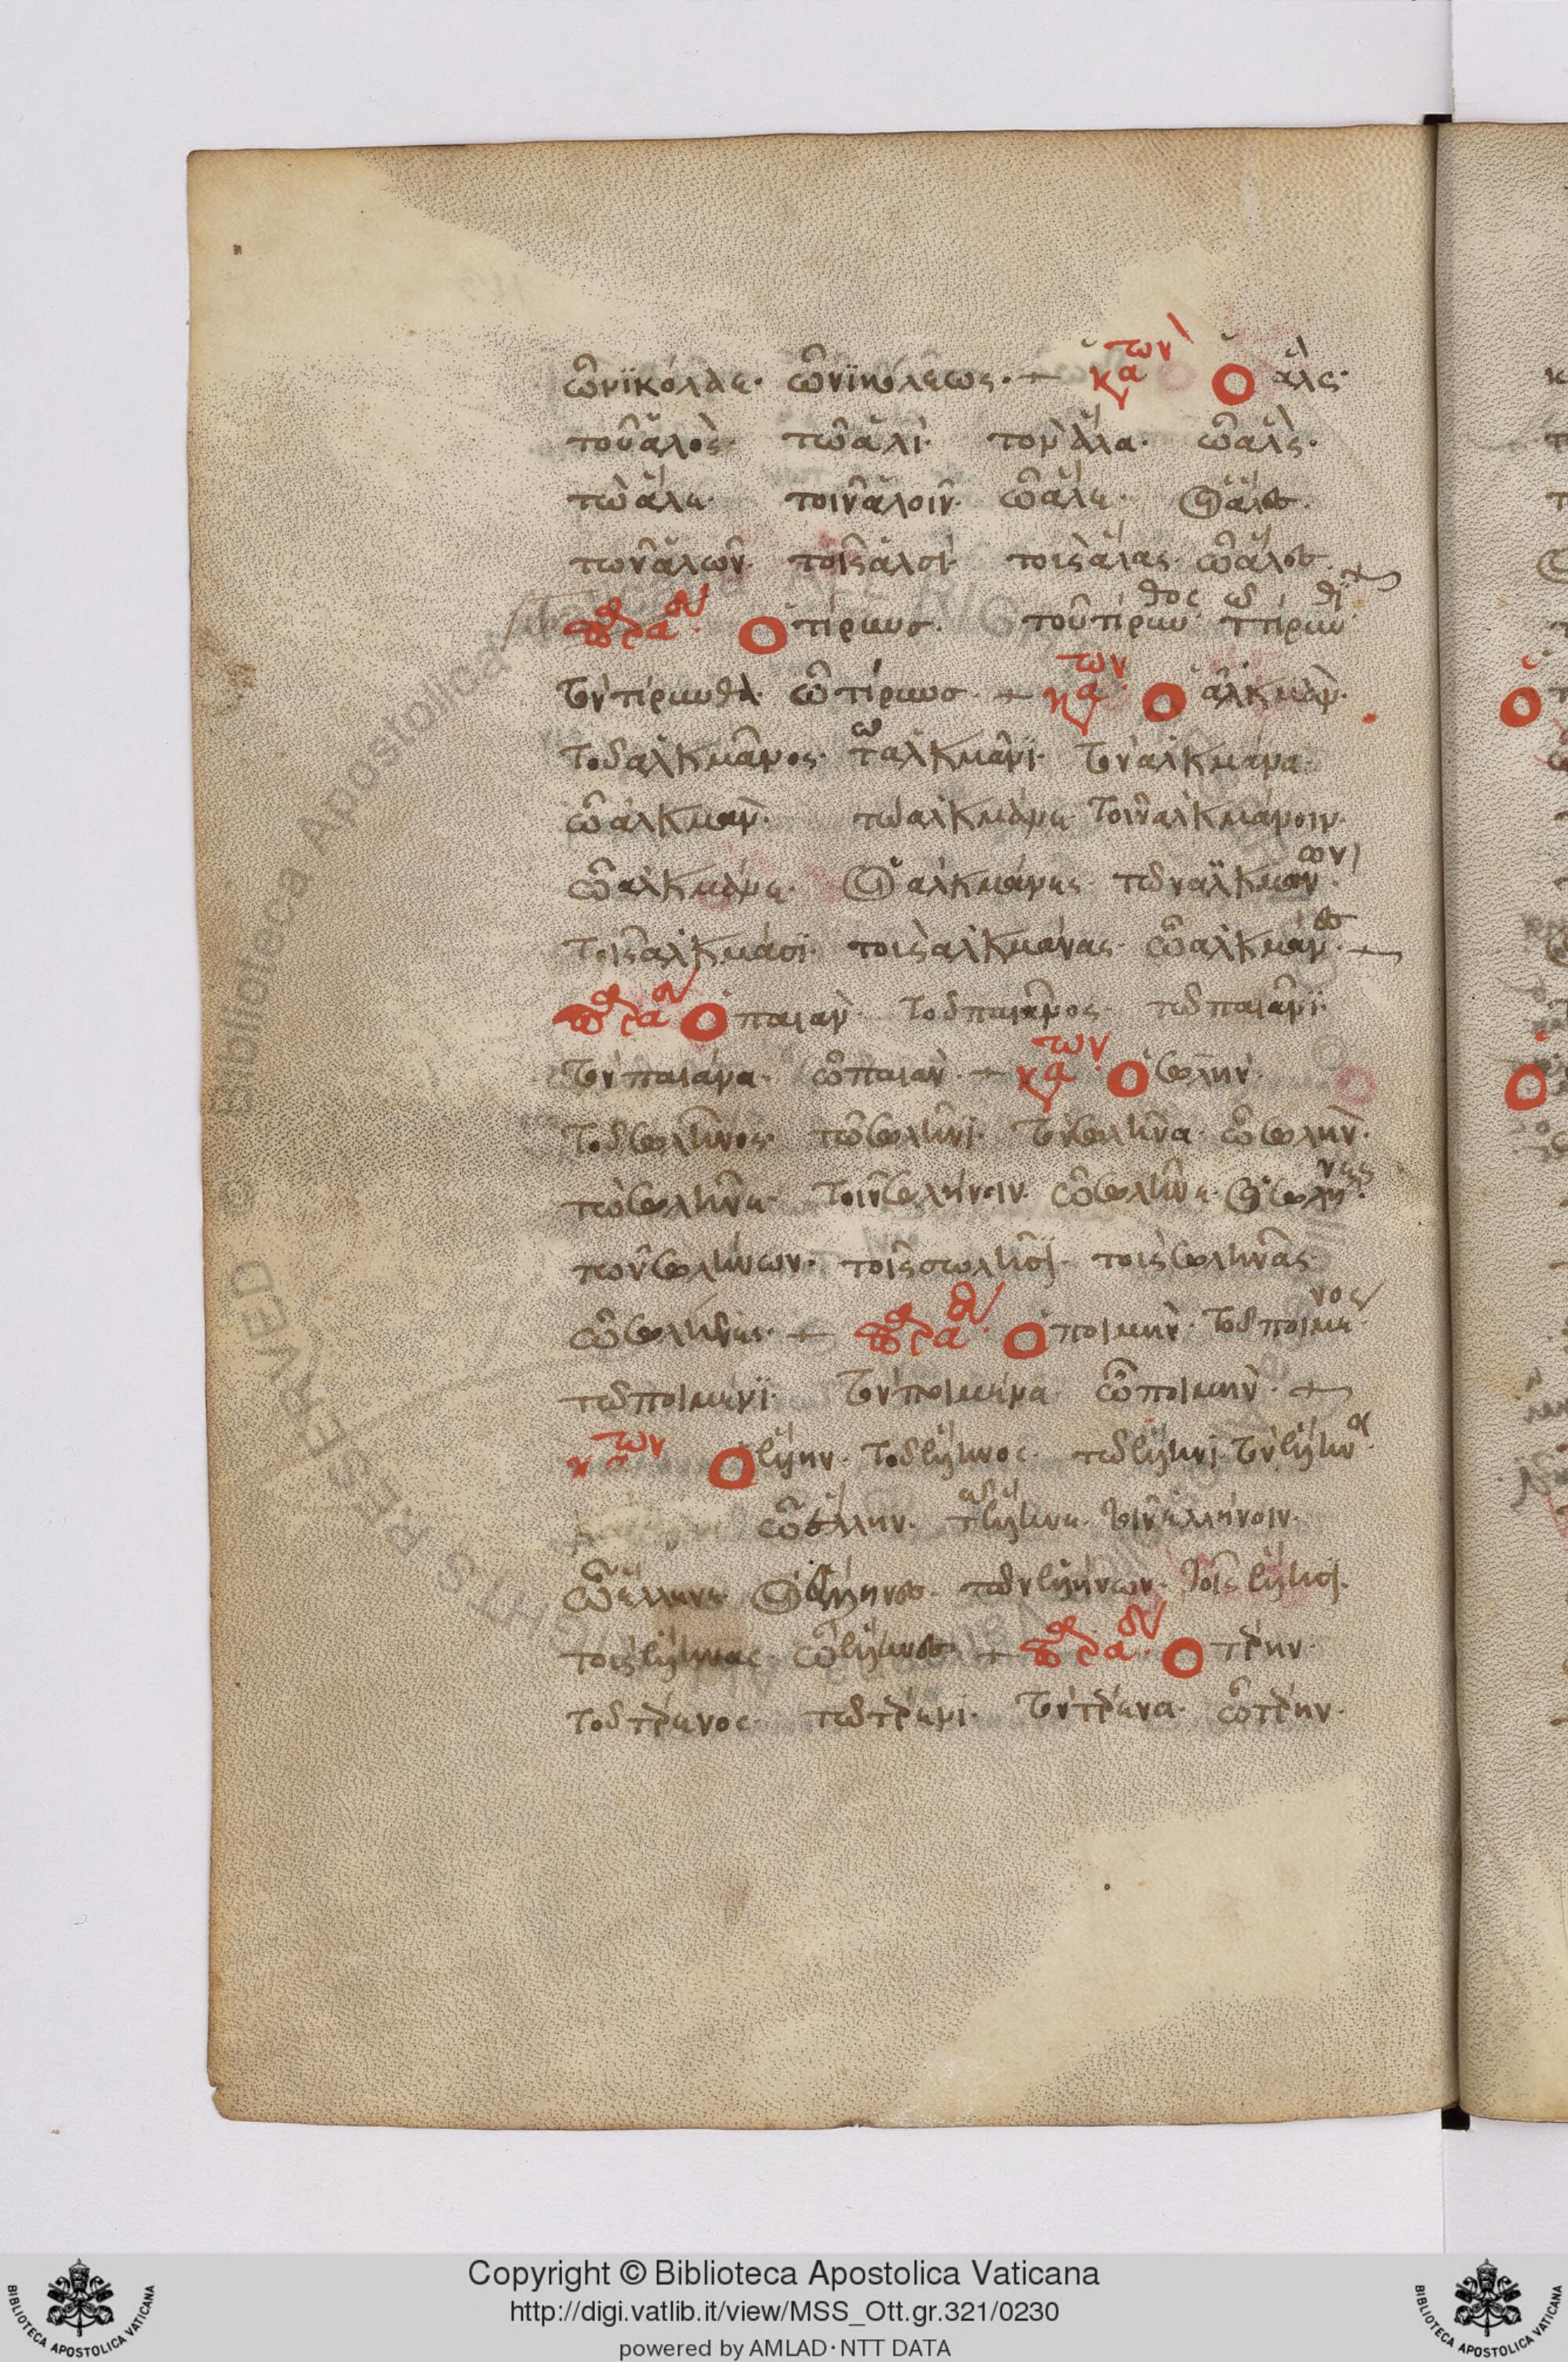 ὦ νικόλαε· ὦ νικόλεως· κανὼν ὁ ἅλς·
τοῦ ἁλὸς· τῶ ἁλὶ· τὸν ἅλα· ὦ ἅλς·
τὼ ἅλε· τοῖν ἁλοῖν· ὦ ἅλε· οἱ ἅλες·
τῶν ἁλῶν· τοῖς ἁλσὶ· τοὺς ἅλας· ὦ ἅλες
ὁ τίρυνς· τοῦ τίρυνθος τῶ τίρυνθι
τὸν τίρυνθα· ὦ τίρυνς· κανὼν ὁ ἀλκμὰν·
τοῦ ἀλκμᾶνος· τῶ ἀλκμᾶνι· τὸν ἀλκμᾶνα·
ὦ ἀλκμὰν· τὼ ἀλκμᾶνε τοῖν ἀλκμάνοιν·
ὦ ἀλκμᾶνε· οἱ ἀλκμάνες· τῶν ἀλκμάνων·
τοῖς ἀλκμάσι· τοὺς ἀλκμάνας· ὦ ἀλκμάνες·
ὁ παιὰν· τοῦ παιᾶνος· τῶ παιᾶνι·
τὸν παιάνα· ὦ παιὰν· κανὼν· ὁ σωλὴν·
τοῦ σωλῆνος· τῶ σωλῆνι· τὸν σωλῆνα· ὦ σωλὴν·
τὼ σωλῆνε· τοῖν σωλήνοιν· ὦ σωλῆνε· οἱ σωλῆνες·
τῶν σωλήνων· τοῖς σωλῆσι· τοὺς σωλῆνας·
ὦ σωλῆνες· ὁ ποιμὴν· τοῦ ποιμένος
τῶ ποιμένι· τὸν ποιμένα· ὦ ποιμὴν·
κανὼν ὁ ἕλλην· τοῦ ἕλληνος· τῶ ἕλληνι· τὸν ἕλληνα·
ὦ ἕλλην· τὼ ἕλληνε· τοῖν ἑλλήνοιν·
ὦ ἕλληνε· οἱ ἕλληνες· τῶν ἑλλήνων· τοῖς ἕλλησι·
τοὺς ἕλληνας· ὦ ἕλληνες· ὁ τέρην·
τοῦ τέρενος· τῶ τέρενι· τὸν τέρενα· ὦ τέρην·
© Biblioteca Apostolica Vaticana ALL RIGHTS RESERVED
Copyright © Biblioteca Apostolica Vaticana
http://digi.vatlib.it/view/MSS_Ott.gr.321/0230
powered by AMLAD · NTT DATA
BIBLIOTECA APOSTOLICA VATICANA
BIBLIOTECA APOSTOLICA VATICANA